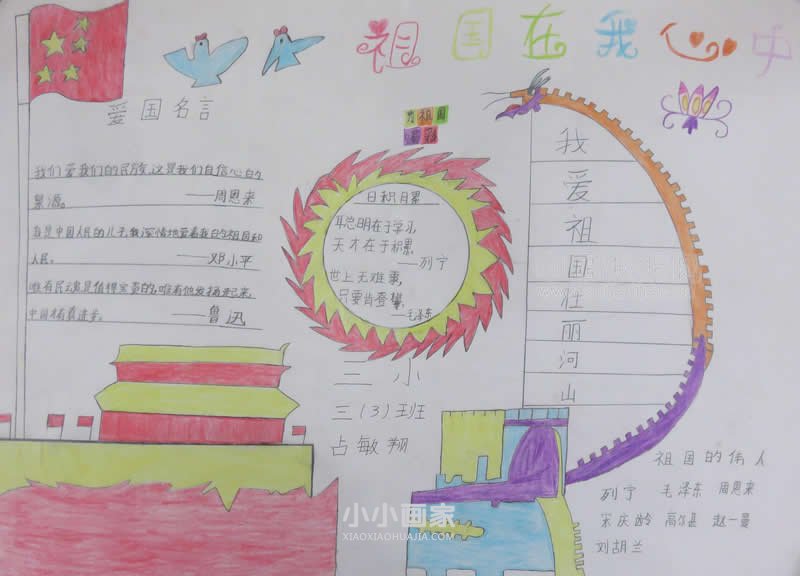 祖国在我心中
爱国名言
我们爱我们的民族,这是我们自信心的
泉源。
——周恩来
我是中国人民的儿子,我深情地爱着我的祖国和
人民。
——邓小平
唯有民魂是值得宝贵的,唯有他发扬起来,
中国才有真进步。
——鲁迅
为祖国
喝彩
日积月累
聪明在于学习,
天才在于积累
——列宁
世上无难事,
只要肯登攀
——毛泽东
三小
三(3)班
占敏翔
我爱祖国壮丽河山
祖国的伟人
列宁 毛泽东 周恩来
宋庆龄 高尔基 赵一曼
刘胡兰
小小画家
XIAOXIAOHUAJIA.COM